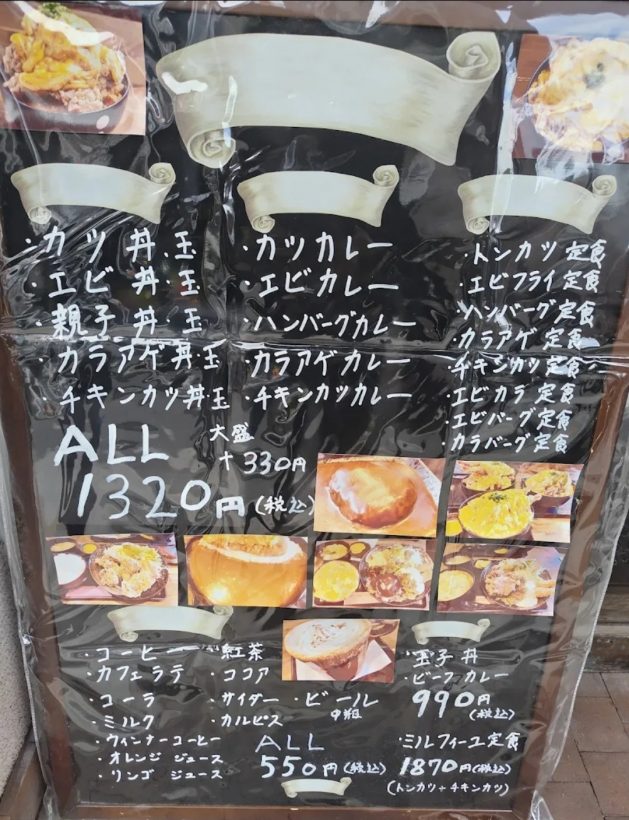 ・カツ丼玉
・エビ丼玉
・親子丼玉
・カラアゲ丼玉
・チキンカツ丼玉
・カツカレー
・エビカレー
・ハンバーグカレー
・カラアゲカレー
・チキンカツカレー
・トンカツ定食
・エビフライ定食
・ハンバーグ定食
・カラアゲ定食
・チキンカツ定食
・エビカラ定食
・エビバーグ定食
・カラバーグ定食
ALL
1320円(税込)
大盛
+330円
・コーヒー ・紅茶
・カフェラテ ・ココア
・コーラ ・サイダー ・ビール
・ミルク ・カルピス
・ウィンナーコーヒー
・オレンジ ジュース
・リンゴ ジュース
ALL
550円(税込)
・玉子丼
・ビーフカレー
990円
(税込)
・ミルフィーユ定食
1870円(税込)
(トンカツ+チキンカツ)